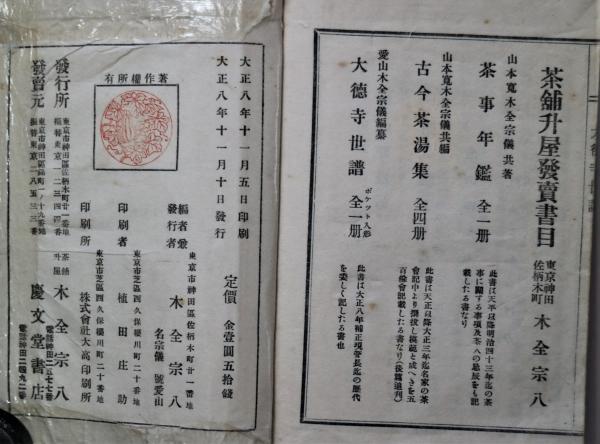 茶舗升屋發賣書目
東京神田佐柄木町 木全宗八
山本寛 木全宗儀 共著
茶事年鑑 全一册
此書は天平以降明治四十三年迄の茶事に關する事項及茶人の忌辰をも記載したる書なり
山本寛 木全宗儀 共編
古今茶湯集 全四册
此書は天正以降大正三年迄名家の茶會記中より撰拔し模範と成へきを五百餘會記載したる書なり(後篇追刊)
愛山木全宗儀編纂
大德寺世譜 ポケツト入形 全一册
此書は大正八年補正現管長迄の歴代を委しく記したる書也
大正八年十一月五日印刷
大正八年十一月十日發行
著作權所有
定價 金壹圓五拾錢
編者兼發行者
東京市神田區佐柄木町廿一番地
木全宗八
名宗儀 號愛山
印刷者
東京市芝區西久保櫻川町二十番地
植田庄助
印刷所
東京市芝區西久保櫻川町二十番地
株式會社大高印刷所
發行所
東京市神田區佐柄木町廿一番地
振替東京
茶舗 升屋 木全宗八
電話神田二五七七番
發賣元
東京市神田區錦町
振替東京一八五三三番
慶文堂書店
電話神田二四九二番